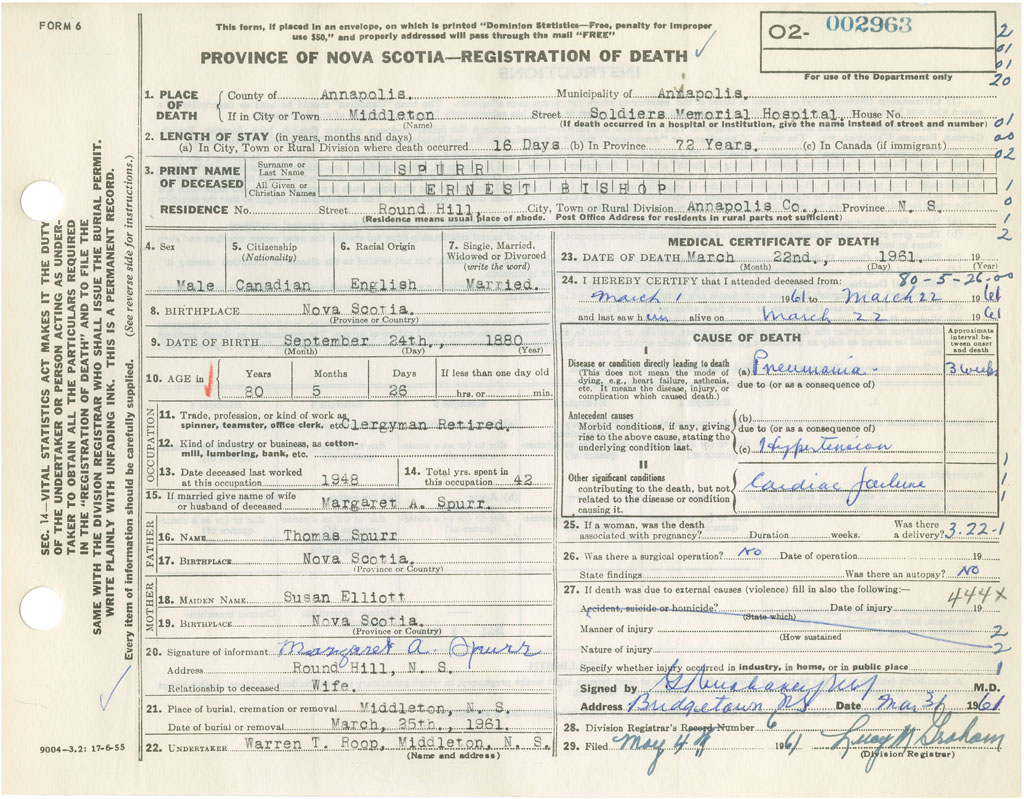 FORM 6
This form, if placed in an envelope, on which is printed "Dominion Statistics—Free, penalty for improper
use $50," and properly addressed will pass through the mail "FREE"
O2- 002963
For use of the Department only
PROVINCE OF NOVA SCOTIA—REGISTRATION OF DEATH
2
01
01
20
1. PLACE OF DEATH
County of Annapolis. Municipality of Annapolis.
If in City or Town Middleton Street Soldiers Memorial Hospital, House No.
(Name) (If death occurred in a hospital or institution, give the name instead of street and number)
01
00
02
2. LENGTH OF STAY (in years, months and days)
(a) In City, Town or Rural Division where death occurred 16 Days (b) In Province 72 Years. (c) In Canada (if immigrant)
3. PRINT NAME OF DECEASED
Surname or Last Name SPURR
All Given or Christian Names ERNEST BISHOP
1
0
1
2
RESIDENCE No. Street Round Hill, City, Town or Rural Division Annapolis Co., Province N. S.
(Residence means usual place of abode. Post Office Address for residents in rural parts not sufficient)
4. Sex
Male
5. Citizenship
(Nationality)
Canadian
6. Racial Origin
English
7. Single, Married, Widowed or Divorced
(write the word)
Married.
8. BIRTHPLACE Nova Scotia.
(Province or Country)
9. DATE OF BIRTH September 24th., 1880
(Month) (Day) (Year)
10. AGE in
Years Months Days If less than one day old
80 5 26 hrs. or min.
OCCUPATION
11. Trade, profession, or kind of work as
spinner, teamster, office clerk, etc. Clergyman Retired.
12. Kind of industry or business, as cotton-
mill, lumbering, bank, etc.
13. Date deceased last worked
at this occupation 1948
14. Total yrs. spent in
this occupation 42
15. If married give name of wife
or husband of deceased Margaret A. Spurr.
FATHER
16. NAME Thomas Spurr
17. BIRTHPLACE Nova Scotia.
(Province or Country)
MOTHER
18. MAIDEN NAME Susan Elliott
19. BIRTHPLACE Nova Scotia.
(Province or Country)
20. Signature of informant Margaret A. Spurr
Address Round Hill, N. S.
Relationship to deceased Wife.
21. Place of burial, cremation or removal Middleton, N. S.
Date of burial or removal March, 25th., 1961.
22. UNDERTAKER Warren T. Roop, Middleton, N. S.
(Name and address)
MEDICAL CERTIFICATE OF DEATH
23. DATE OF DEATH March 22nd., 1961. 19
(Month) (Day) (Year)
24. I HEREBY CERTIFY that I attended deceased from: 80-5-26 00
March 1 1961 to March 22 1961
and last saw him alive on March 22 1961
CAUSE OF DEATH
Approximate interval between onset and death
I
Disease or condition directly leading to death
(This does not mean the mode of
dying, e.g., heart failure, asthenia,
etc. It means the disease, injury, or
complication which caused death.)
(a) Pneumonia
3 weeks
due to (or as a consequence of)
Antecedent causes
Morbid conditions, if any, giving
rise to the above cause, stating the
underlying condition last.
(b)
due to (or as a consequence of)
(c) Hypertension
II
Other significant conditions
contributing to the death, but not
related to the disease or condition
causing it.
Cardiac failure
1
1
1
25. If a woman, was the death
associated with pregnancy? Duration weeks.
Was there
a delivery? 3.22-1
26. Was there a surgical operation? No Date of operation 19
State findings Was there an autopsy? No
27. If death was due to external causes (violence) fill in also the following:—
444X
Accident, suicide or homicide? Date of injury 19
(State which)
Manner of injury 2
(How sustained
Nature of injury 2
Specify whether injury occurred in industry, in home, or in public place 1
Signed by M.D.
Address Bridgetown NS Date Mar 31 1961
28. Division Registrar's Record Number 6
29. Filed May 4th 1961 Lucy M Graham
(Division Registrar)
SEC. 14—VITAL STATISTICS ACT MAKES IT THE DUTY
OF THE UNDERTAKER OR PERSON ACTING AS UNDER-
TAKER TO OBTAIN ALL THE PARTICULARS REQUIRED
IN THE "REGISTRATION OF DEATH" AND TO FILE THE
SAME WITH THE DIVISION REGISTRAR WHO SHALL ISSUE THE BURIAL PERMIT.
WRITE PLAINLY WITH UNFADING INK. THIS IS A PERMANENT RECORD.
Every item of information should be carefully supplied. (See reverse side for instructions.)
9004—3.2: 17-6-55